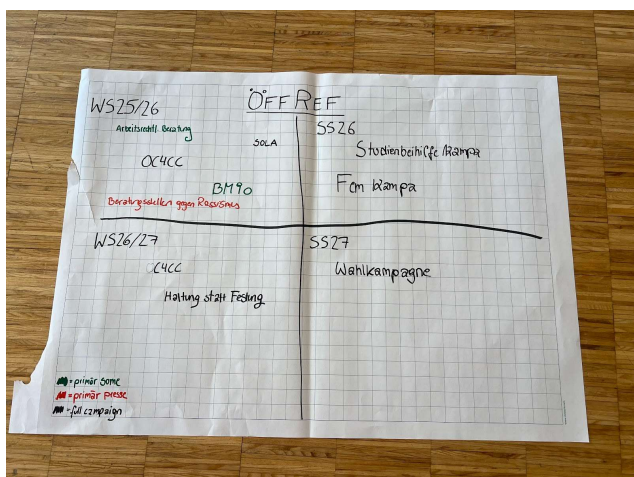 ÖFF REF
WS25/26
Arbeitsrechtl. Beratung
SOLA
OC4CC
BM90
Beratungsstellen gegen Rassismus
SS26
Studienbeihilfe Kampa
Fem Kampa
WS26/27
C4CC
Haltung statt Festung
SS27
Wahlkampagne
= primär Some
= primär presse
= full campaign